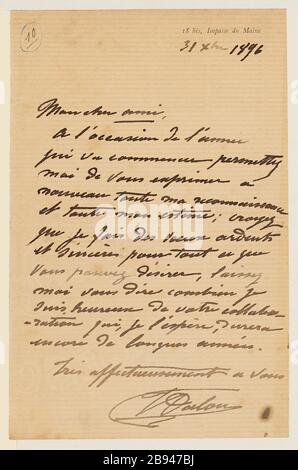 10
18 bis, Impasse du Maine
31 Xbre 1896
Mon cher ami,
A l'occasion de l'année
qui va commencer permettez
moi de vous exprimer a
nouveau toute ma reconnaissance
et toute mon estime; croyez
que je fais des vœux ardents
et sincères pour tout ce que
vous pouvez désirer, laissez
moi vous dire combien je
suis heureux de votre collabo-
ration qui, je l'espère, durera
encore de longues années.
Très affectueusement a vous
Dalou
alamy
Image ID: 2B947BJ
www.alamy.com